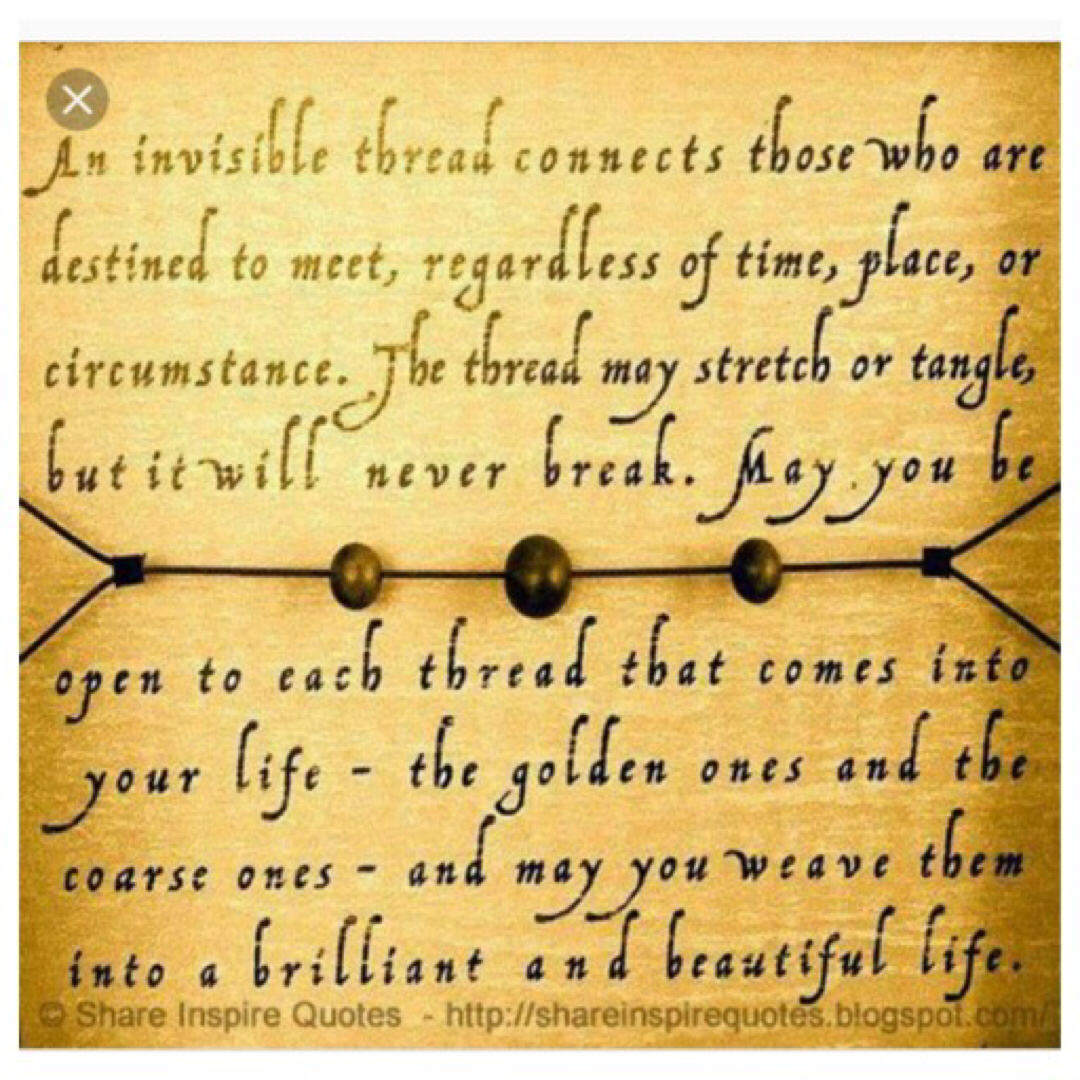 An invisible thread connects those who are
destined to meet, regardless of time, place, or
circumstance. The thread may stretch or tangle,
but it will never break. May you be
open to each thread that comes into
your life - the golden ones and the
coarse ones - and may you weave them
into a brilliant and beautiful life.
© Share Inspire Quotes - http://shareinspirequotes.blogspot.com/